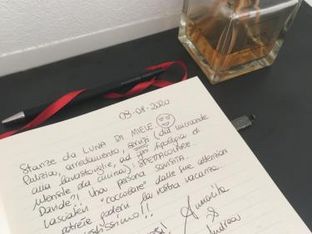 03-08-2020
Stanze da LUNA DI MIELE
Pulizia, arredamento, servizi (dal microonde
alla lavastoviglie, ad ogni tipologia di
utensile da cucina) SPETTACOLARE.
Davide? Una persona SQUISITA.
Lasciatevi "coccolare" dalle sue attenzioni
potrete godervi la vostra vacanza.
!!
&
Andrea